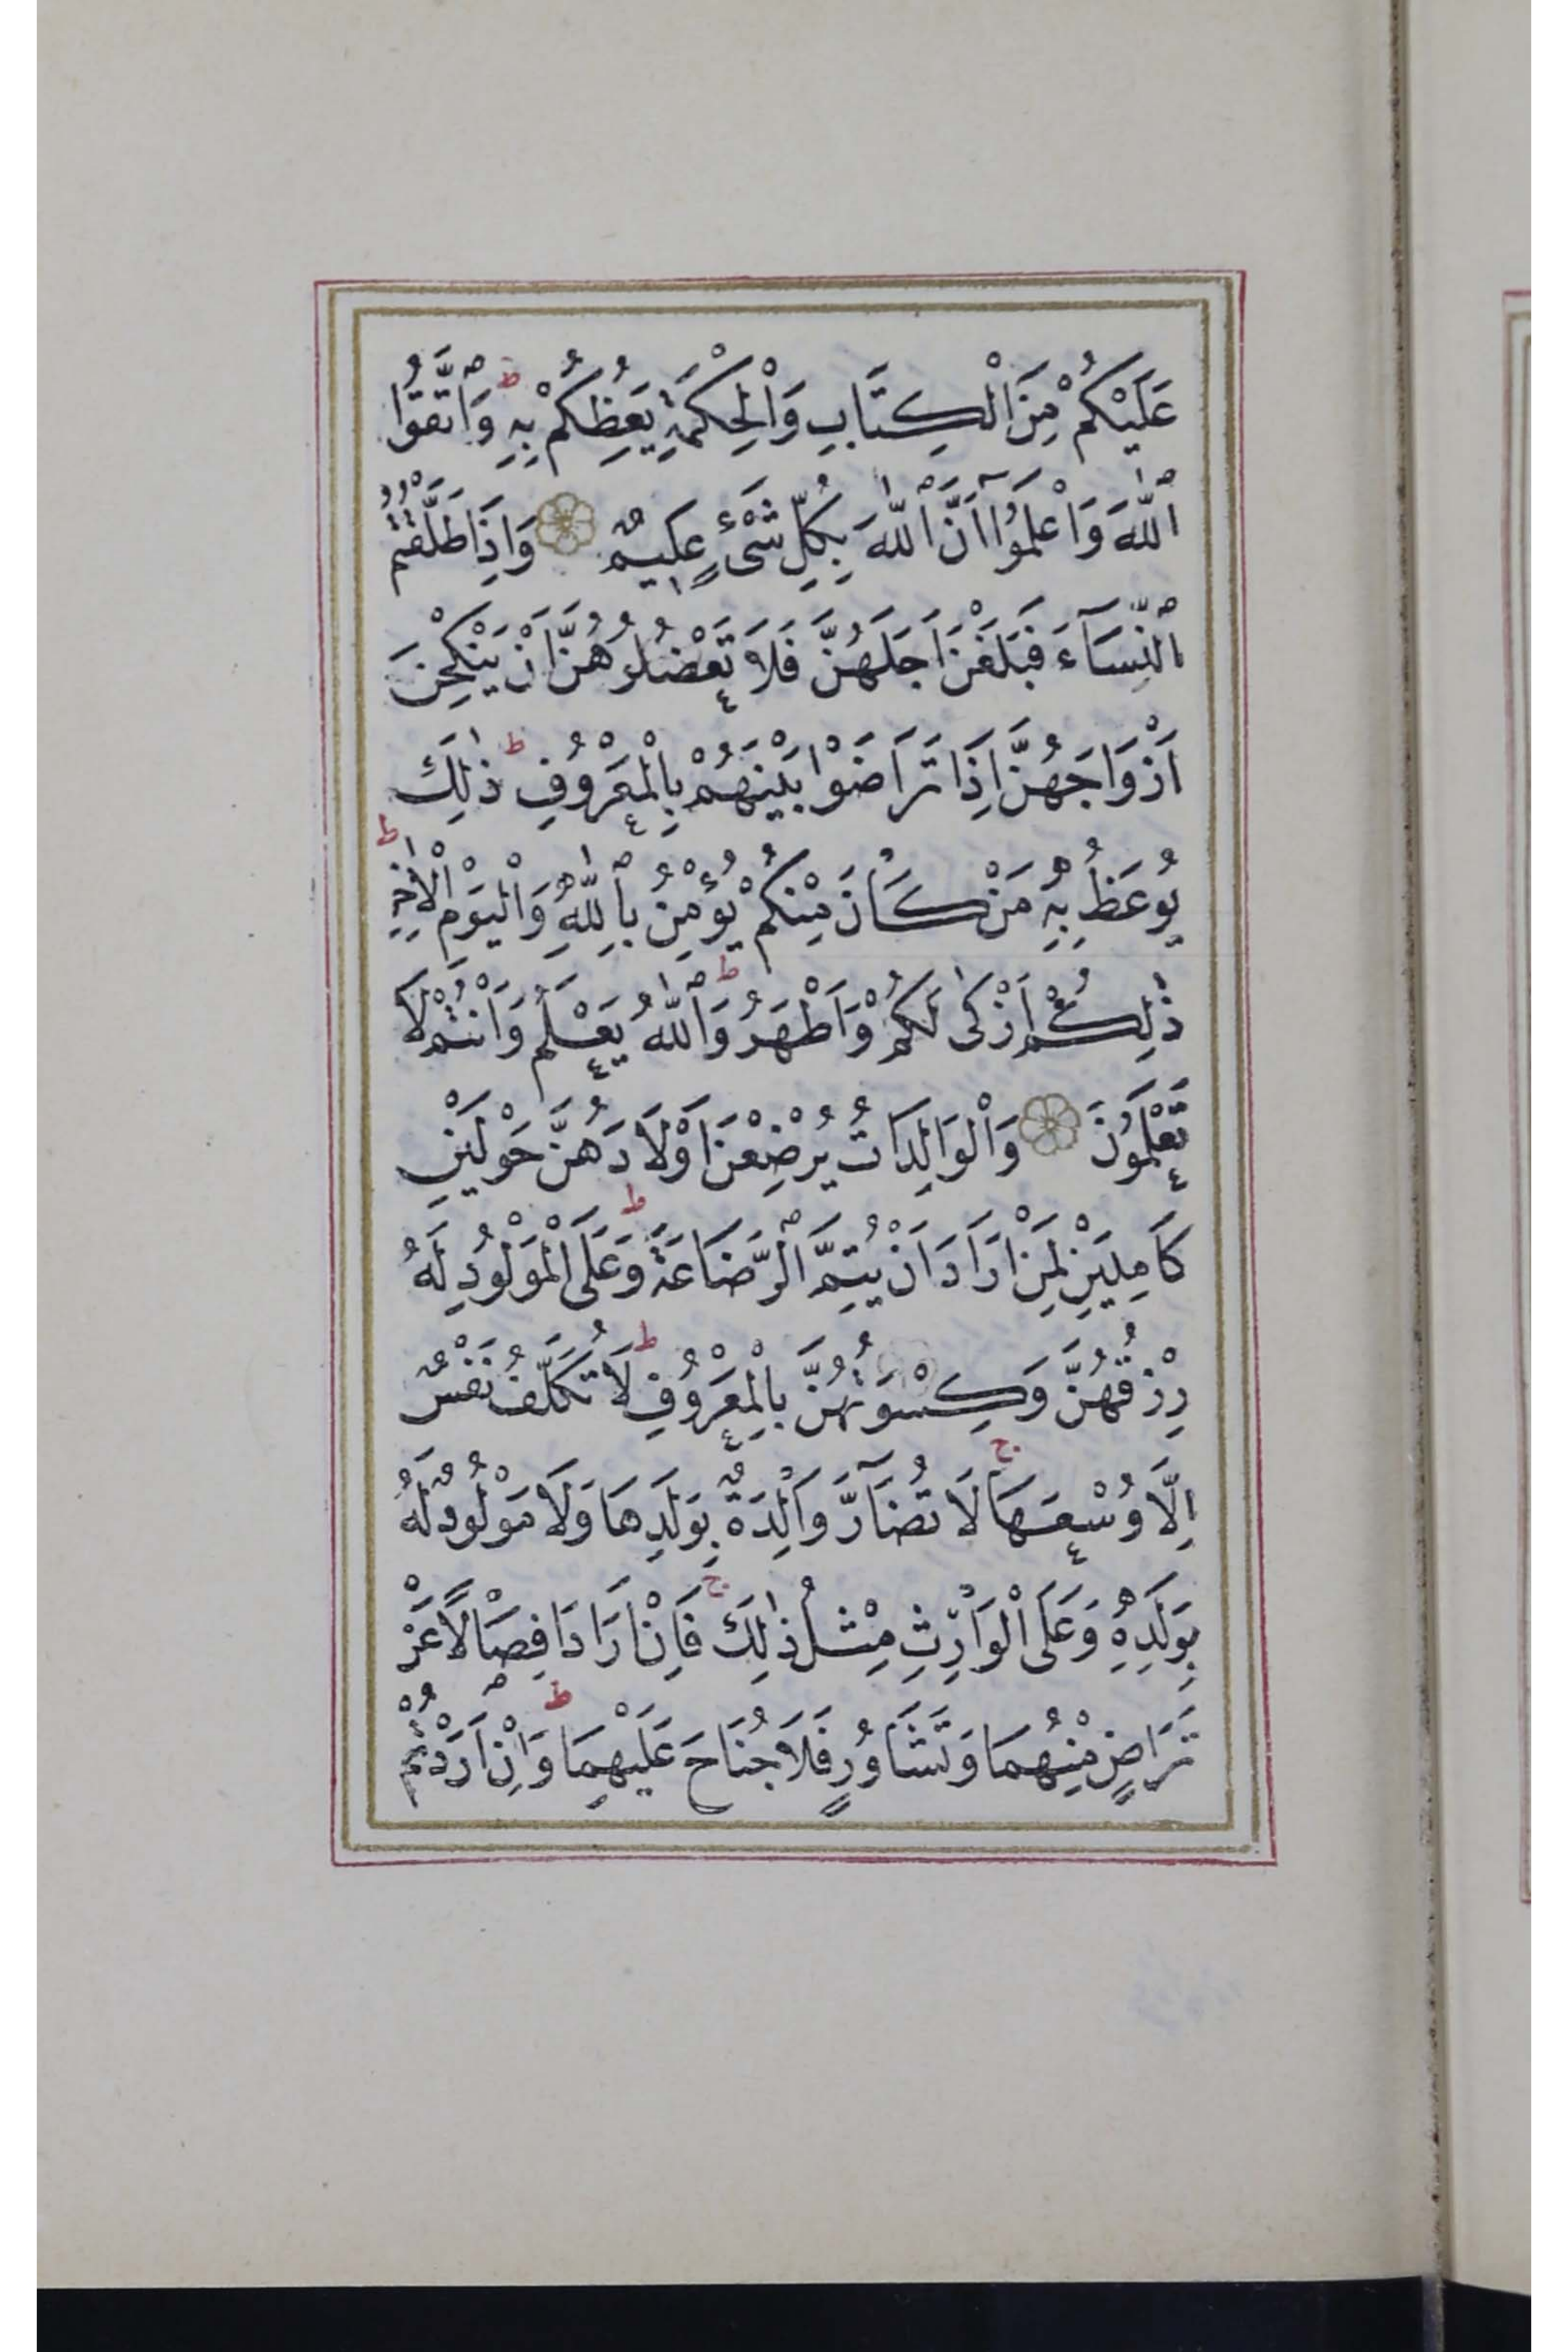 عَلَيْكُمْ مِنَ الْكِتَابِ وَالْحِكْمَةِ يَعِظُكُمْ بِهِ ۖ ط وَاتَّقُوا
اللّٰهَ وَاعْلَمُوٓا اَنَّ اللّٰهَ بِكُلِّ شَىْءٍ عَلِيمٌ وَاِذَا طَلَّقْتُمُ
النِّسَآءَ فَبَلَغْنَ اَجَلَهُنَّ فَلَا تَعْضُلُوهُنَّ اَنْ يَنْكِحْنَ
اَزْوَاجَهُنَّ اِذَا تَرَاضَوْا بَيْنَهُمْ بِالْمَعْرُوفِ ط ذٰلِكَ
يُوعَظُ بِهِ مَنْ كَانَ مِنْكُمْ يُؤْمِنُ بِاللّٰهِ وَالْيَوْمِ الْاٰخِرِ ط
ذٰلِكُمْ اَزْكٰى لَكُمْ وَاَطْهَرُ ط وَاللّٰهُ يَعْلَمُ وَاَنْتُمْ لَا
تَعْلَمُونَ وَالْوَالِدَاتُ يُرْضِعْنَ اَوْلَادَهُنَّ حَوْلَيْنِ
كَامِلَيْنِ لِمَنْ اَرَادَ اَنْ يُتِمَّ الرَّضَاعَةَ ط وَعَلَى الْمَوْلُودِ لَهُ
رِزْقُهُنَّ وَكِسْوَتُهُنَّ بِالْمَعْرُوفِ ط لَا تُكَلَّفُ نَفْسٌ
اِلَّا وُسْعَهَا ج لَا تُضَآرَّ وَالِدَةٌ بِوَلَدِهَا وَلَا مَوْلُودٌ لَهُ
بِوَلَدِهِ وَعَلَى الْوَارِثِ مِثْلُ ذٰلِكَ ج فَاِنْ اَرَادَا فِصَالًا عَنْ
تَرَاضٍ مِنْهُمَا وَتَشَاوُرٍ فَلَا جُنَاحَ عَلَيْهِمَا ط وَاِنْ اَرَدْتُمْ